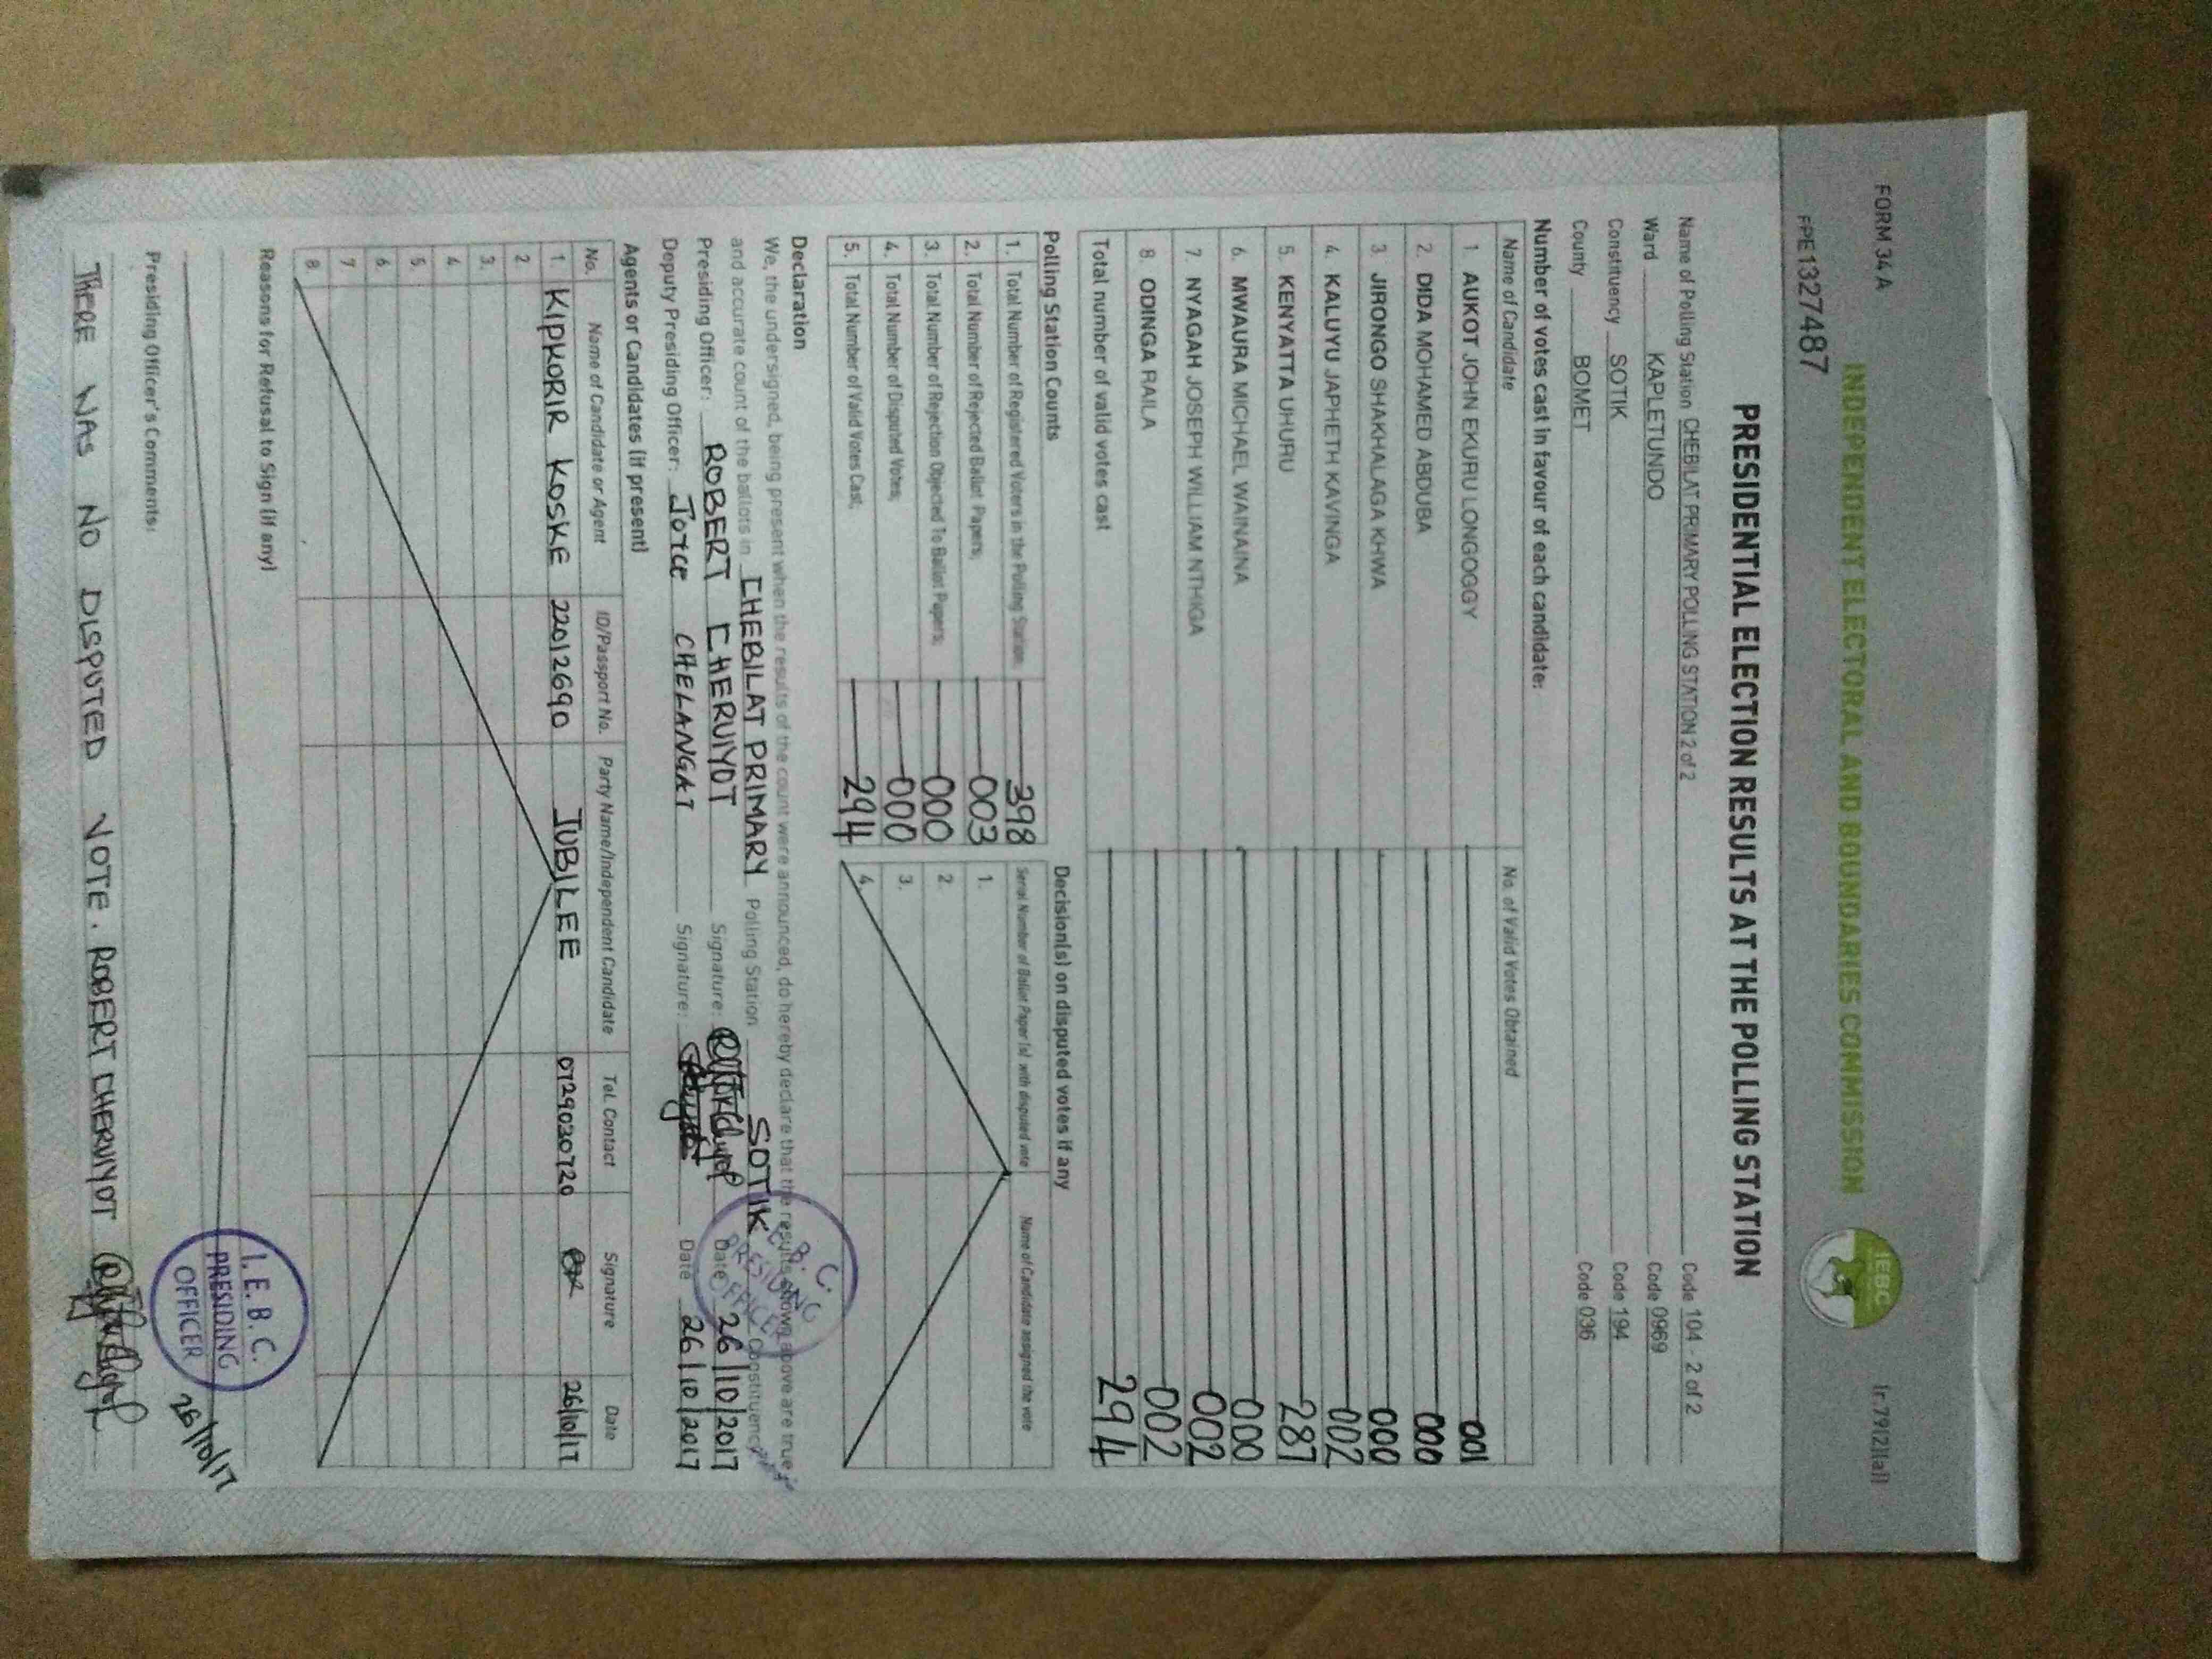 FORM 34 A
INDEPENDENT ELECTORAL AND BOUNDARIES COMMISSION
IEBC
[r.79(2)(a)]
FPE1327487
PRESIDENTIAL ELECTION RESULTS AT THE POLLING STATION
Name of Polling Station CHEBILAT PRIMARY POLLING STATION 2 of 2 Code 104 - 2 of 2
Ward KAPLETUNDO Code 0969
Constituency SOTIK Code 194
County BOMET Code 036
Number of votes cast in favour of each candidate:
Name of Candidate No. of Valid Votes Obtained
1 AUKOT JOHN EKURU LONGOGGY 001
2. DIDA MOHAMED ABDUBA 000
3 JIRONGO SHAKHALAGA KHWA 000
4. KALUYU JAPHETH KAVINGA 002
5. KENYATTA UHURU 287
6. MWAURA MICHAEL WAINAINA 000
7 NYAGAH JOSEPH WILLIAM NTHIGA 002
8. ODINGA RAILA 002
Total number of valid votes cast 294
Polling Station Counts
1. Total Number of Registered Voters in the Polling Station; 398
2. Total Number of Rejected Ballot Papers; 003
3. Total Number of Rejection Objected To Ballot Papers; 000
4. Total Number of Disputed Votes; 000
5. Total Number of Valid Votes Cast; 294
Decision(s) on disputed votes if any
Serial Number of Ballot Paper (s) with disputed vote Name of Candidate assigned the vote
1.
2.
3.
4.
Declaration
We, the undersigned, being present when the results of the count were announced, do hereby declare that the results shown above are true
and accurate count of the ballots in CHEBILAT PRIMARY Polling Station SOTIK Constituency
Presiding Officer: ROBERT CHERUIYOT Signature: Date 26/10/2017
Deputy Presiding Officer: JOYCE CHELANGAT Signature: Date 26/10/2017
PRESIDING
OFFICER
Agents or Candidates (if present)
No. Name of Candidate or Agent ID/Passport No. Party Name/Independent Candidate Tel. Contact Signature Date
1. KIPKORIR KOSKE 22012690 JUBILEE 0729030720 26/10/17
2
3.
4
5.
6.
7
8.
Reasons for Refusal to Sign (if any)
I.E.B.C.
PRESIDING
OFFICER
26/10/17
Presiding Officer's Comments:
THERE WAS NO DISPUTED VOTE. ROBERT CHERUIYOT